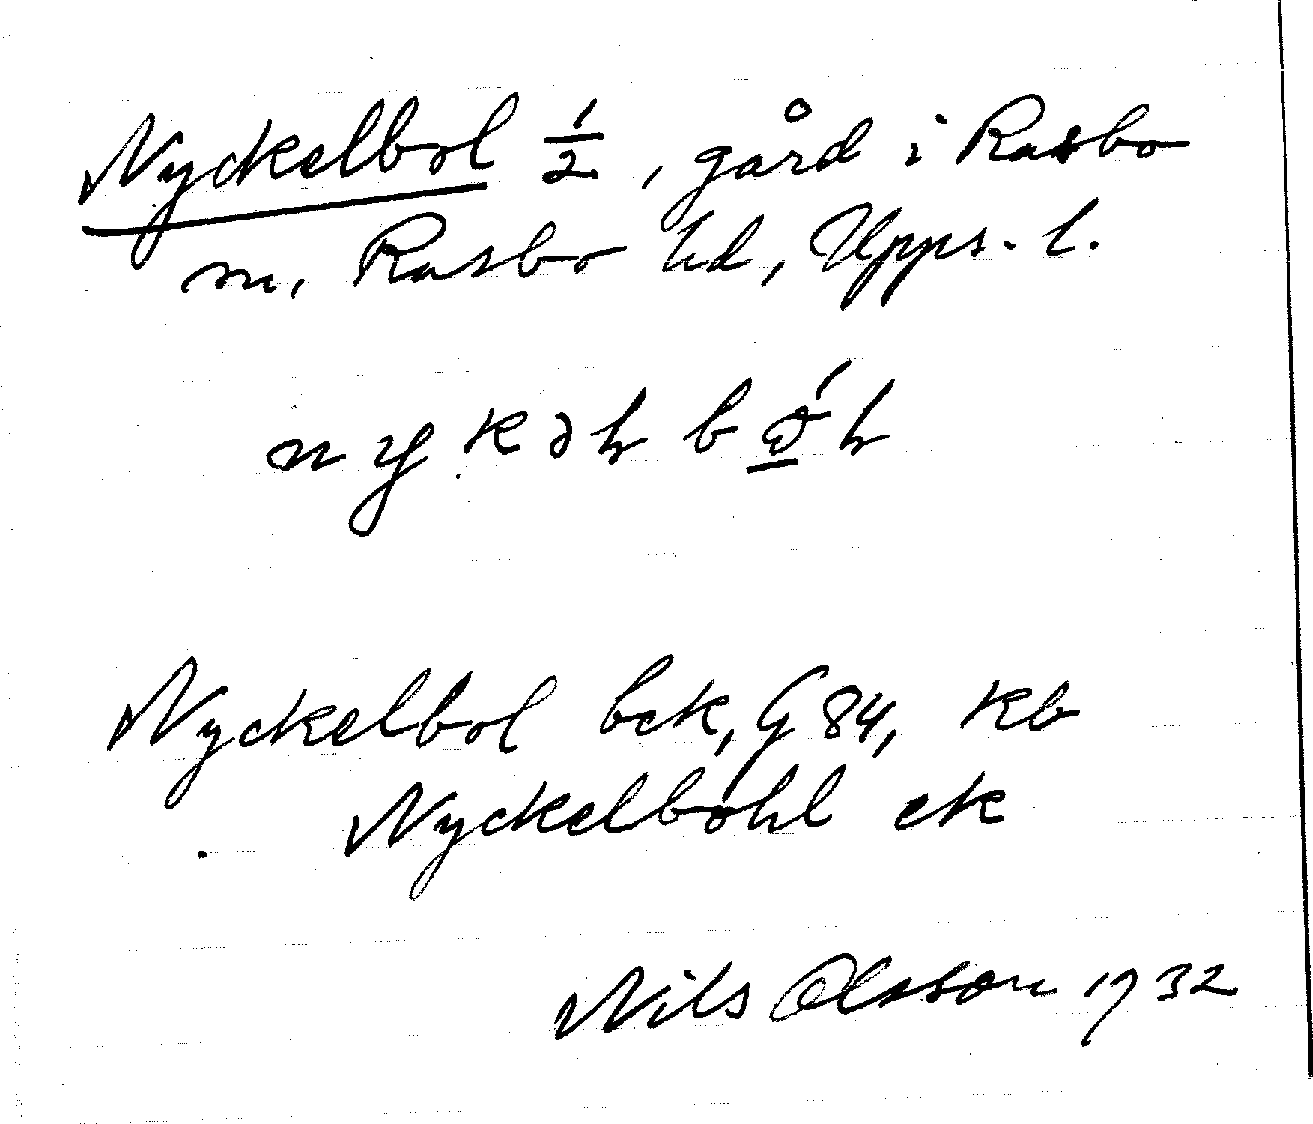 Nyckelbol ½, gård i Rasbo
sn, Rasbo hd, Upps. l.
Nyckelbol bck, G 84, kb
Nyckelbohl ek
Nils Olsson 1932